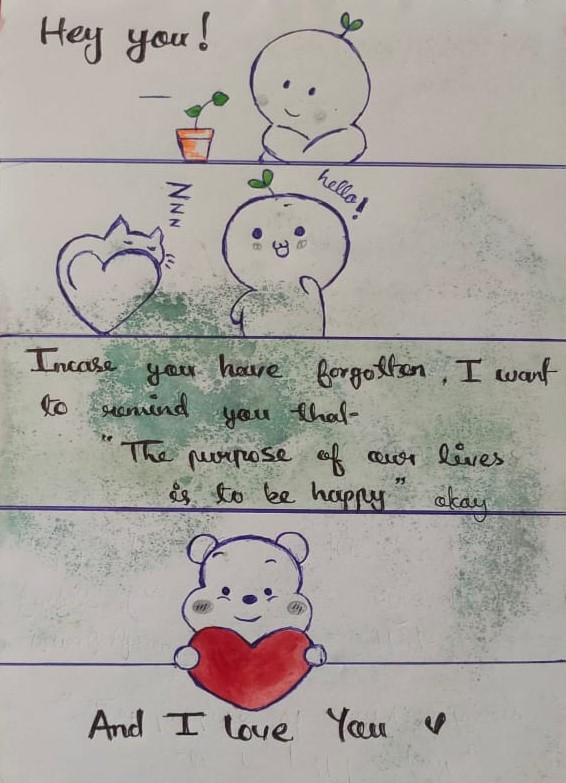 Hey you!
hello!
ZZZ
Incase you have forgotten, I want
to remind you that-
"The purpose of our lives
is to be happy" okay
And I love You ♥